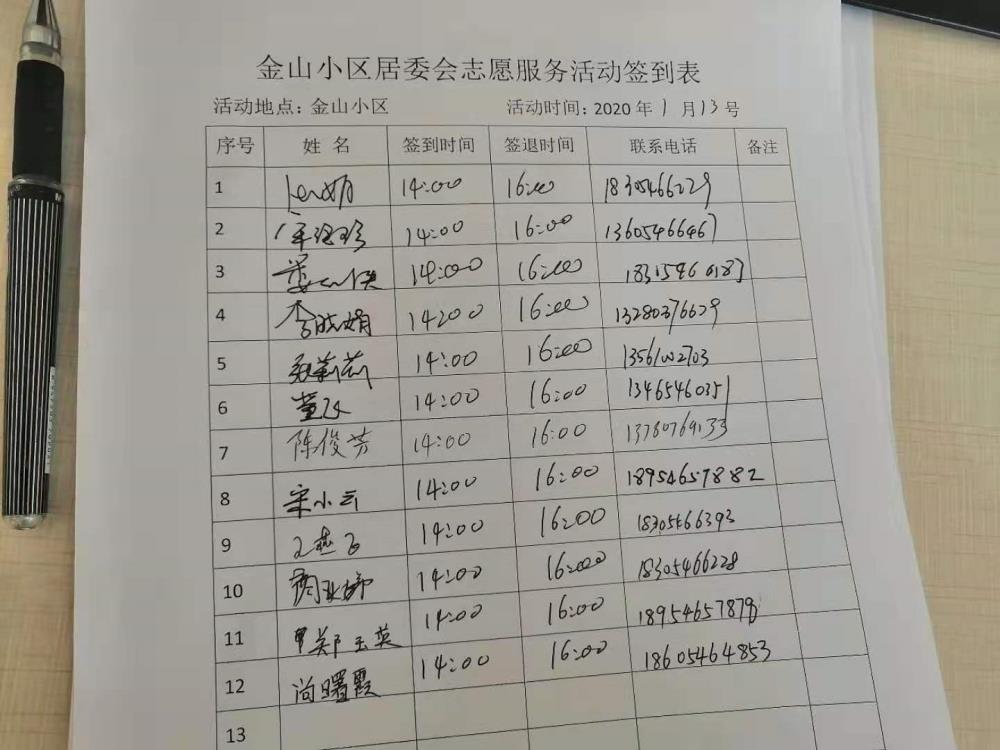 金山小区居委会志愿服务活动签到表
活动地点：金山小区 活动时间：2020年1月13号
序号 姓名 签到时间 签退时间 联系电话 备注
1 14:00 16:00 18305466229
2 14:00 16:00 13605466467
3 14:00 16:00
4 李晓娟 14:00 16:00 13280376629
5 莉莉 14:00 16:00 13561002703
6 14:00 16:00 13465460351
7 陈俊芳 14:00 16:00 13780769133
8 宋小云 14:00 16:00 18954657882
9 14:00 16:00 18305466393
10 14:00 16:00 18305466228
11 郑玉英 14:00 16:00 18954657878
12 尚曙霞 14:00 16:00 18605464853
13